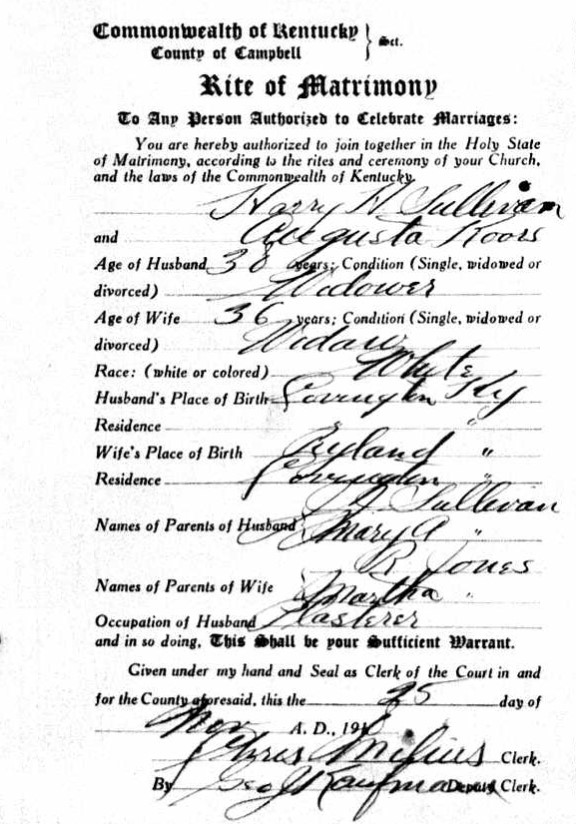 Commonwealth of Kentucky } Sct.
County of Campbell
Rite of Matrimony
To Any Person Authorized to Celebrate Marriages:
You are hereby authorized to join together in the Holy State
of Matrimony, according to the rites and ceremony of your Church,
and the laws of the Commonwealth of Kentucky.
Harry H. Sullivan
and Augusta Koors
Age of Husband 38 years; Condition (Single, widowed or
divorced) Widower
Age of Wife 36 years; Condition (Single, widowed or
divorced) Widow
Race: (white or colored) White
Husband's Place of Birth Covington Ky
Residence " "
Wife's Place of Birth Ryland "
Residence Covington "
J. Sullivan
Names of Parents of Husband Mary A "
R Jones
Names of Parents of Wife Martha "
Occupation of Husband Plasterer
and in so doing, This Shall be your Sufficient Warrant.
Given under my hand and Seal as Clerk of the Court in and
for the County aforesaid, this the 25 day of
Nov A. D., 191
Clerk.
By Geo J Kaufman Deputy Clerk.